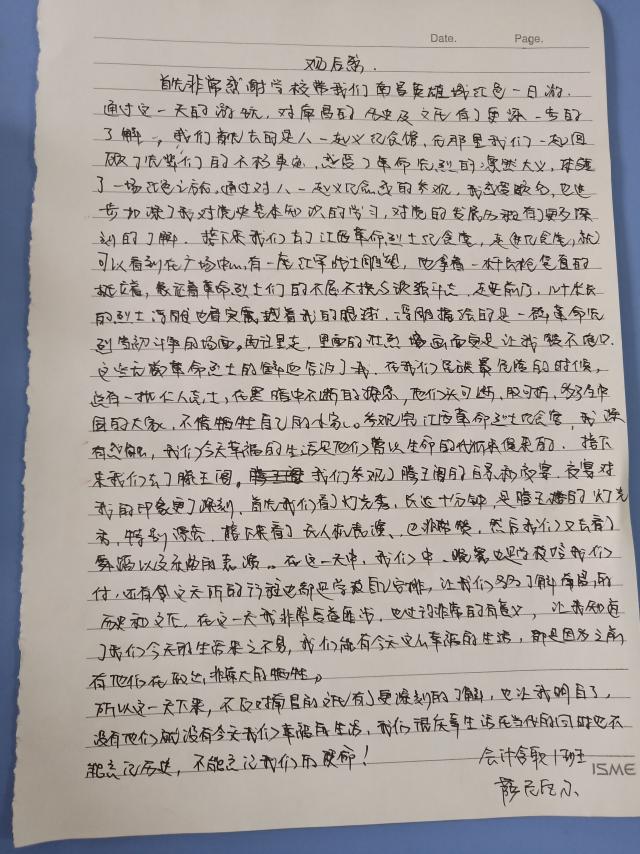 Date. Page.
观后感.
首先非常感谢学校带我们南昌英雄城红色一日游.
通过这一天的游玩, 对南昌的历史及文化有了更深一步的
了解, 我们首先去的是八一起义纪念馆, 在那里我们一起回
顾了先辈们的不朽事迹, 感受了革命先烈的凛然大义, 
了一场红色之旅, 通过对八一起义纪念馆的参观, 我感受颇多, 也进一
步加深了我对党史基本知识的学习, 对党的发展历程有了更多深
刻的了解. 接下来我们去了江西革命烈士纪念堂, 走进纪念堂, 就
可以看到在广场中心, 有一座红军战士雕塑, 他拿着一杆长枪笔直的
挺立着, 象征着革命烈士们的不屈不挠与 斗志. 走更前方, 几十米长
的烈士浮雕也着实震撼着我的眼球. 浮雕描绘的是一群革命先
烈当初斗争的场面. 再往里走, 里面的 画面更是让我赞不绝口.
这些无数革命烈士的 告诉了我. 在我们民族最危险的时候,
总有一批仁人志士, 在黑暗中不断的探索, 他们头可断, 血可流, 为了中
国的大家, 不惜牺牲自己的小家. 参观完江西革命烈士纪念堂, 我深
有感触, 我们今天幸福的生活是他们曾以生命的代价来换来的. 接下
来我们去了滕王阁. 我们参观了滕王阁的日景和夜宴. 夜宴对
我的印象更为深刻, 首先我们看了灯光秀, 长达十分钟, 是滕王阁的灯光
秀, 特别漂亮. 接下来看了无人机表演, 也非常赞, 然后我们又去看了
舞蹈以及乐曲的表演. 在这一天中, 我们中、晚餐也是学校给我们
付, 还有包这天所的行程也都是学校自己安排, 让我们多多了解南昌的
历史和文化, 在这一天我非常 , 也过的非常的有意义, 让我知道
了我们今天的生活来之不易, 我们能有今天这么幸福的生活, 那是因为之前
有他们在 非常大的牺牲.
所以这一天下来, 不仅对南昌的文化有了更深刻的了解, 也让我明白了,
没有他们就没有今天我们幸福的生活, 我们很庆幸生活在当代的同时也不
能忘记历史, 不能忘记我们的使命!
会计
ISME